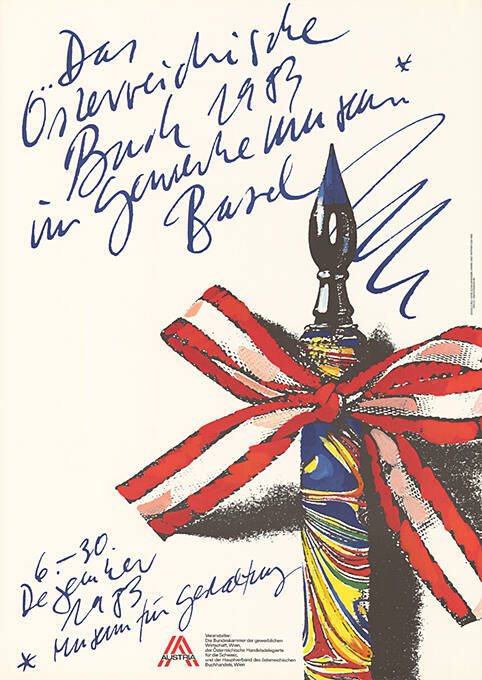 Das
Österreichische
Buch 1983
im Gewerbemuseum*
Basel
6.–30.
Dezember
1983
* Museum für Gestaltung
AUSTRIA
Veranstalter:
Die Bundeskammer der gewerblichen
Wirtschaft, Wien,
der Österreichische Handelsdelegierte
für die Schweiz,
und der Hauptverband des österreichischen
Buchhandels, Wien